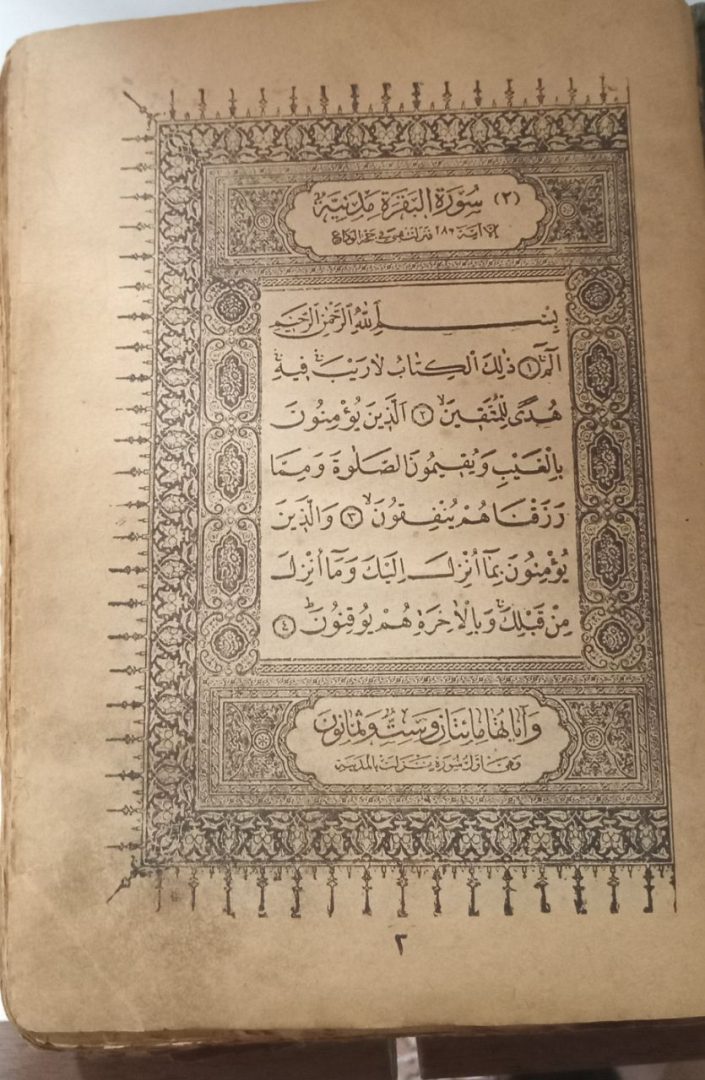 (٢) سُورَةُ الْبَقَرَةِ مَدَنِيَّة
إلا آية ٢٨١ فنزلت بمنى في حجة الوداع
بِسْمِ اللّٰهِ الرَّحْمٰنِ الرَّحِيمِ
الٓمٓ ۚ ﴿١﴾ ذٰلِكَ الْكِتَابُ لَا رَيْبَ ۛ فِيهِ ۛ
هُدًى لِلْمُتَّقِينَ ۙ ﴿٢﴾ الَّذِينَ يُؤْمِنُونَ
بِالْغَيْبِ وَيُقِيمُونَ الصَّلٰوةَ وَمِمَّا
رَزَقْنَاهُمْ يُنْفِقُونَ ۙ ﴿٣﴾ وَالَّذِينَ
يُؤْمِنُونَ بِمَٓا اُنْزِلَ اِلَيْكَ وَمَٓا اُنْزِلَ
مِنْ قَبْلِكَ ۚ وَبِالْاٰخِرَةِ هُمْ يُوقِنُونَ ۜ ﴿٤﴾
وَآيَاتُهَا مِائَتَانِ وَسِتٌّ وَثَمَانُونَ
وهي أول سورة نزلت بالمدينة
٢